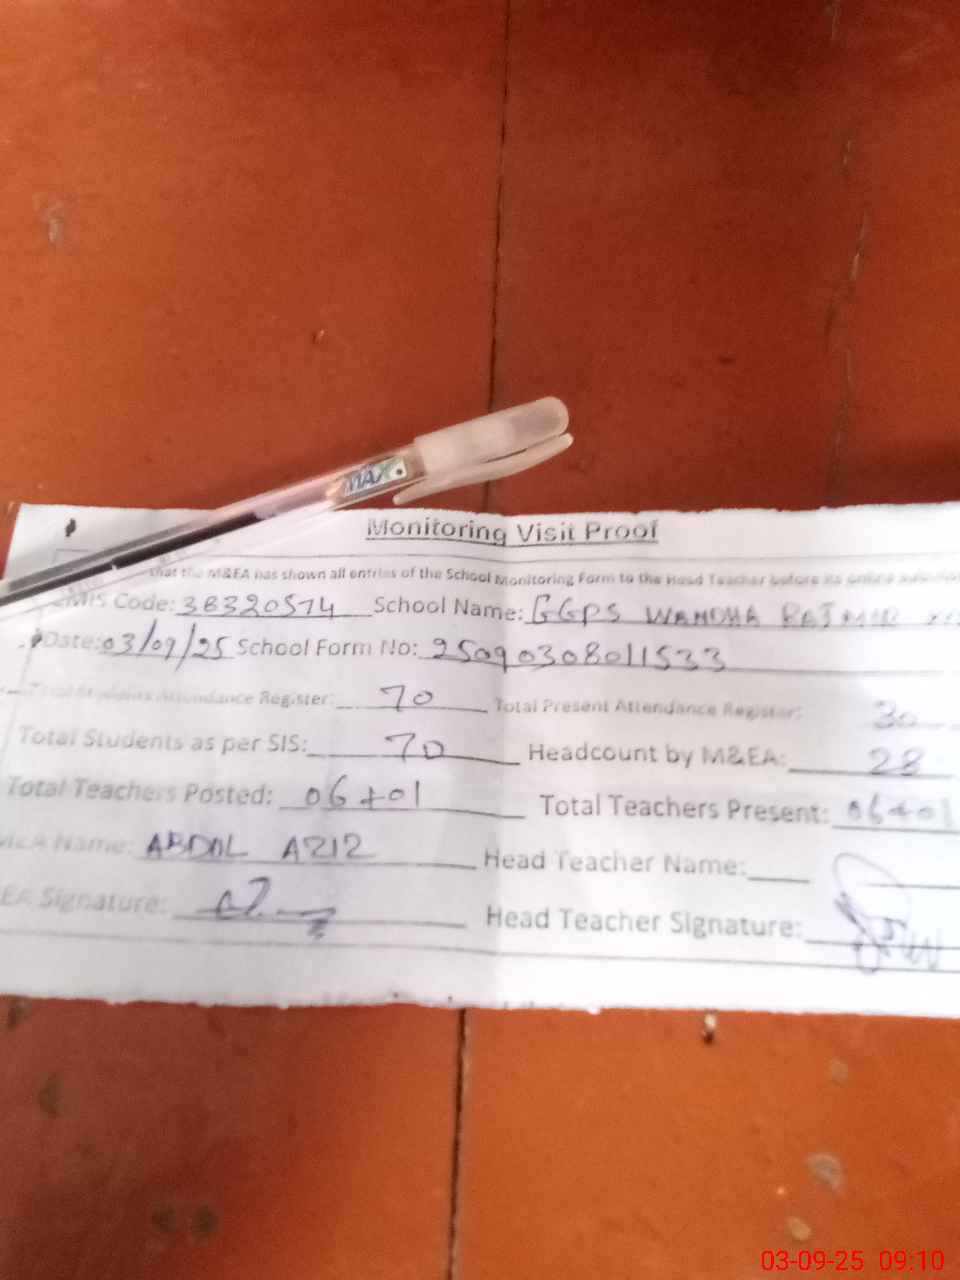 MAX
Monitoring Visit Proof
that the M&EA has shown all entries of the School Monitoring Form to the Head Teacher before its online
EMIS Code: 38320574 School Name: GGPS WANDHA
Date: 03/09/25 School Form No: 25090308011533
Total Students Attendance Register: 70 Total Present Attendance Register: 30
Total Students as per SIS: 70 Headcount by M&EA: 28
Total Teachers Posted: 06+01 Total Teachers Present: 06+01
Name: ABDUL AZIZ Head Teacher Name:
EA Signature: Head Teacher Signature:
03-09-25 09:10